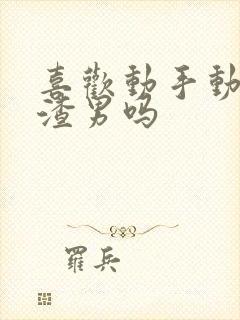 喜歡動手動
渣男吗
羅兵